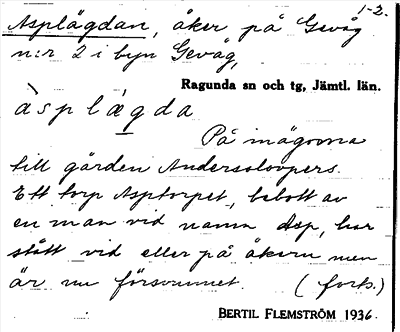 1-2.
Asplägdan, åker på Gevåg
n:r 2 i byn Gevåg,
Ragunda sn och tg, Jämtl. län.
àsplægda
På inägorna
till gården
Ett torp Asptorpet, bebott av
en man vid namn Asp, har
stått vid eller på åkern men
är nu försvunnet. (forts.)
BERTIL FLEMSTRÖM 1936.